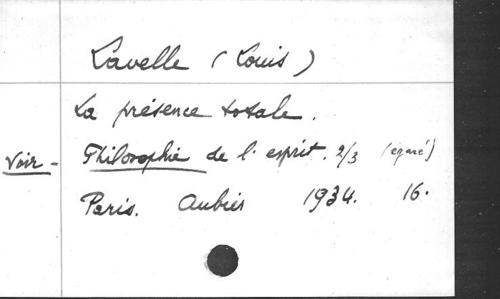 Lavelle (Louis)
La présence totale.
Voir - Philosophie de l'esprit. 2/3 (égaré)
Paris. Aubier 1934. 16.